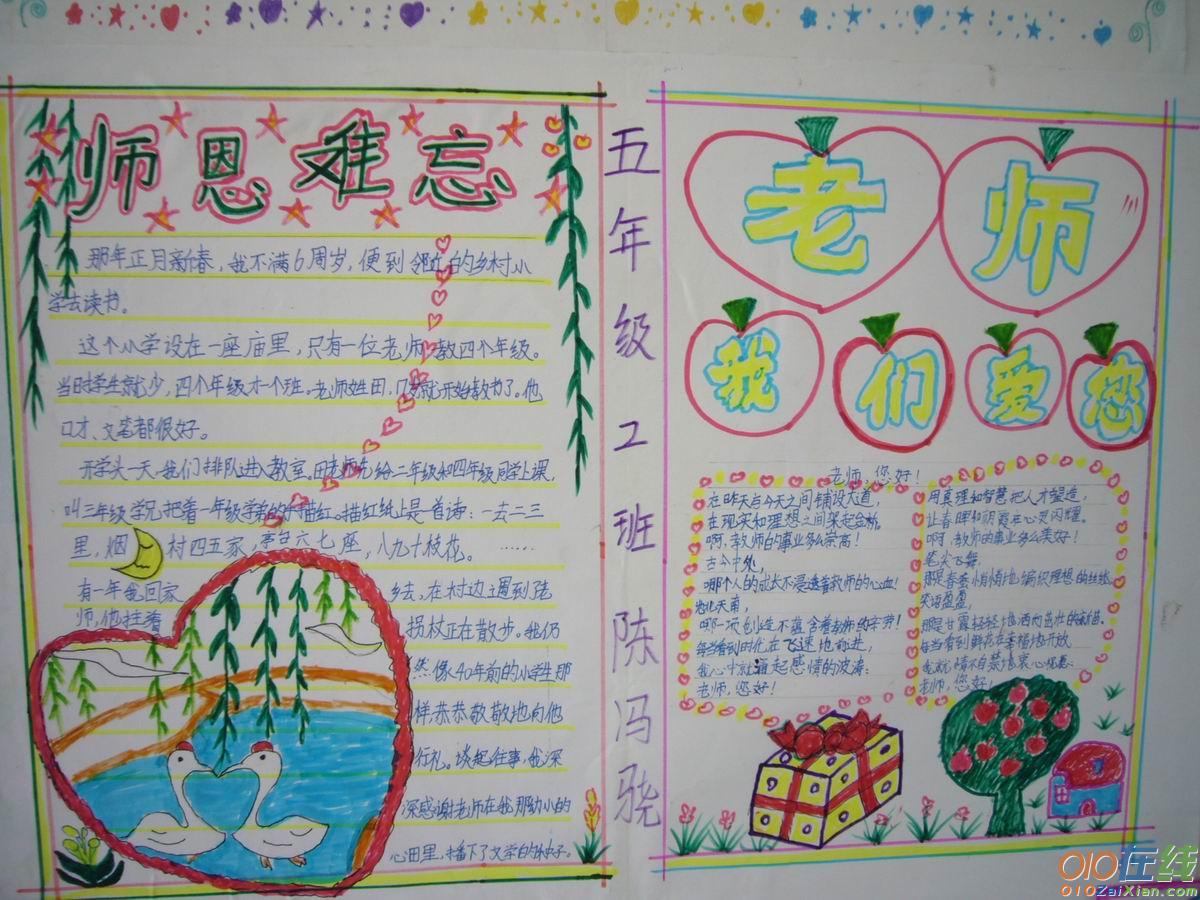 师恩难忘
那年正月新春，我不满6周岁，便到邻近的乡村小
学去读书。
这个小学设在一座庙里，只有一位老师，教四个年级。
当时学生就少，四个年级才一个班。老师姓田，口就开始教书了。他
口才、文笔都很好。
开学头一天，我们排队进入教室。田老师先给二年级和四年级同学上课，
叫三年级学兄把着一年级学弟的手描红。描红纸上是一首诗：一去二三
里，烟村四五家，亭台六七座，八九十枝花。……
有一年我回家乡去，在村边遇到老
师，他拄着拐杖正在散步。我仍
然像40年前的小学生那
样，恭恭敬敬地向他
行礼。谈起往事，我深
深感谢老师在我那幼小的
心田里，播下了文学的种子。
五年级工班 陈冯骁
老师
我们爱您
老师，您好！
在昨天与今天之间铺设大道，
在现实和理想之间架起金桥。
啊，教师的事业多么崇高！
古今中外，
哪个人的成长不浸透着教师的心血！
地北天南，
哪一项创造不蕴含着教师的辛劳！
每当看到时代在飞速地前进，
我心中就涌起感情的波涛：
老师，您好！
用真理和智慧把人才塑造，
让春晖和朝霞在心灵闪耀。
啊，教师的事业多么美好！
笔尖飞舞，
那是春蚕悄悄地编织理想的丝绦
笑语盈盈，
那是甘露轻轻地洒向茁壮的新苗。
每当看到鲜花在幸福地开放，
我就情不自禁地衷心祝愿：
老师，您好！
010在线
010ZaiXian.com